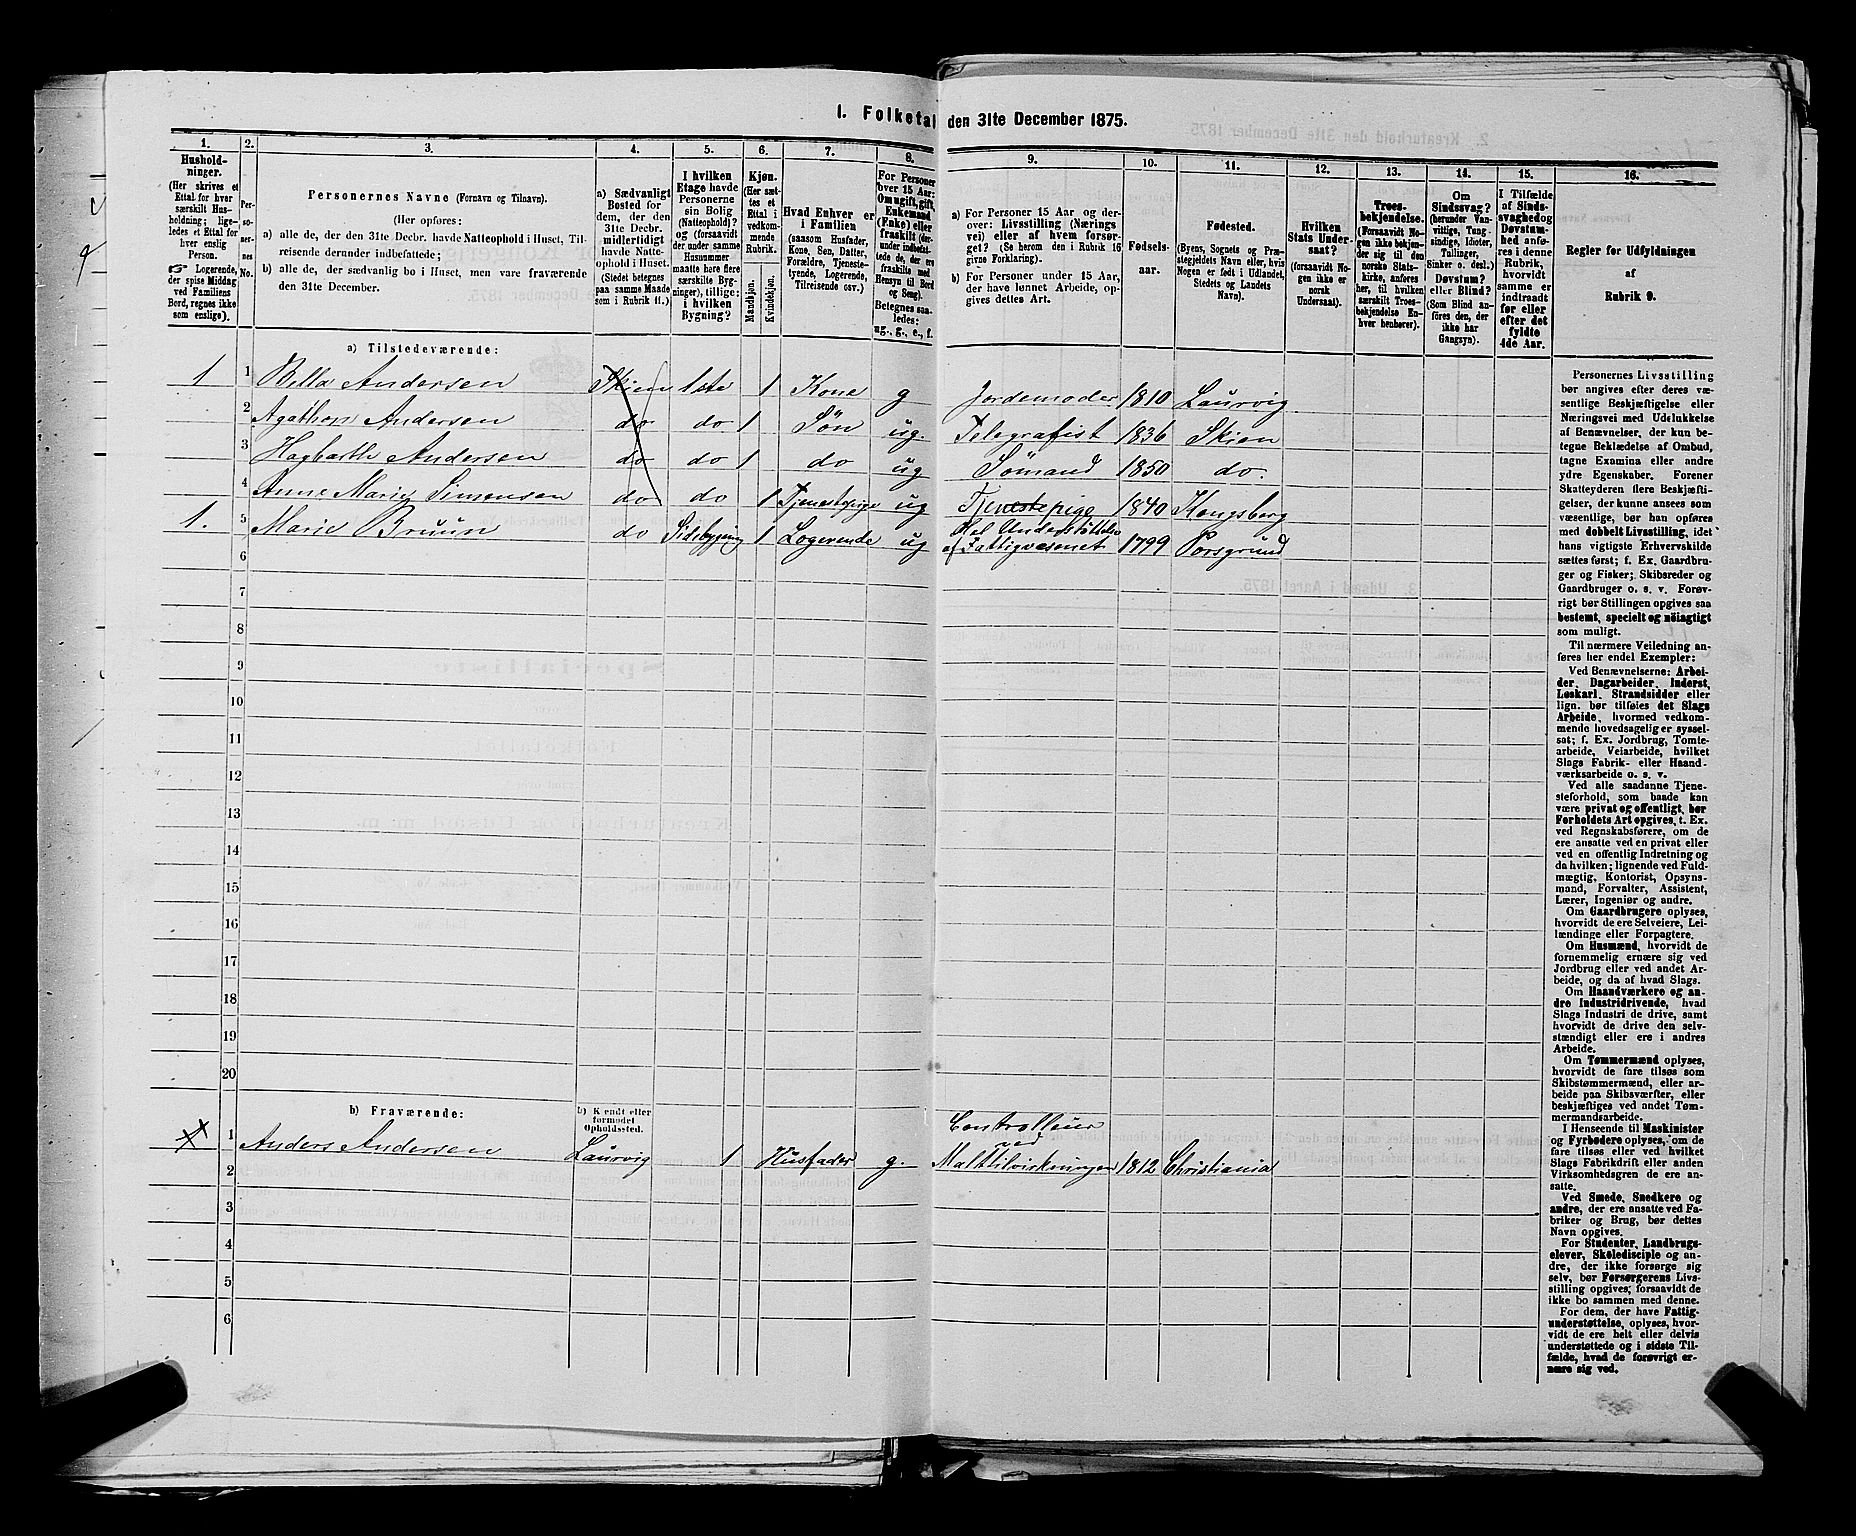 1. Folketal den 31te December 1875.
1.
Hushold-
ninger.
(Her skrives et
Ettal for hver
særskilt Hus-
holdning; lige-
ledes et Ettal for
hver enslig
Person.
☞ Logerende,
der spise Middag
ved Familiens
Bord, regnes ikke
som enslige).
2.
Per-
so-
ner-
nes
No.
3.
Personernes Navne (Fornavn og Tilnavn).
(Her opføres:
a) alle de, der den 31te Decbr. havde Natteophold i Huset, Til-
reisende derunder indbefattede;
b) alle de, der sædvanlig bo i Huset, men vare fraværende
den 31te December.
4.
a) Sædvanligt
Bosted for
dem, der den
31te Decbr.
midlertidigt
havde Natte-
ophold i Huset.
(Stedet betegnes
paa samme Maade
som i Rubrik 11.)
5.
I hvilken
Etage havde
Personerne
sin Bolig
(Natteophold)?
og (forsaavidt
der under samme
Husnummer
maatte høre flere
særskilte Byg-
ninger), tillige:
i hvilken
Bygning?
6.
Kjøn.
(Her sæt-
tes et
Ettal i
vedkom-
mende
Rubrik.
Mandkjøn.
Kvindekjøn.
7.
Hvad Enhver er
i Familien
(saasom Husfader,
Kone, Søn, Datter,
Forældre, Tjeneste-
tyende, Logerende,
Tilreisende osv.)
8.
For Personer
over 15 Aar:
Om ugift, gift,
Enkemand
(Enke) eller
fraskilt (der-
under indbefat-
tede de, der ere
fraskilte med
Hensyn til Bord
og Seng).
Betegnes saa-
ledes:
ug., g., e., f.
9.
a) For Personer 15 Aar og der-
over: Livsstilling (Nærings
vei) eller af hvem forsør-
get? (Se herom den i Rubrik 16
givne Forklaring).
b) For Personer under 15 Aar,
der have lønnet Arbeide, op-
gives dettes Art.
10.
Fødsels-
aar.
11.
Fødested.
(Byens, Sognets og Præ-
stegjeldets Navn eller, hvis
Nogen er født i Udlandet,
Stedets og Landets
Navn).
12.
Hvilken
Stats Under-
saat?
(forsaavidt No-
gen ikke er
norsk
Undersaat).
13.
Troes-
bekjendelse.
(Forsaavidt Nogen
ikke bekjen-
der sig til den
norske Stats-
kirke, anføres
her, til hvilken
særskilt Troes-
bekjendelse En-
hver henhører).
14.
Om
Sindssvag?
(herunder Van-
vittige, Tung-
sindige, Idioter,
Tullinger,
Sinker o. desl.)
Døvstum?
eller Blind?
(Som Blind an-
føres den, der
ikke har
Gangsyn).
15.
I Tilfælde
af Sinds-
svaghed og
Døvstum-
hed anfø-
res i denne
Rubrik,
hvorvidt
samme er
indtraadt
før eller
efter det
fyldte
4de Aar.
16.
Regler for Udfyldningen
af
Rubrik 9.
a) Tilstedeværende:
1 1 Bella Andersen Skien 1ste 1 Kone g Jordemoder 1810 Laurvig
2 Agathon Andersen do do 1 Søn ug. Telegrafist 1836 Skien
3 Hagbarth Andersen do do 1 do ug Sømand 1850 do.
4 Anne Marie Simensen do do 1 Tjenestepige ug Tjenestepige 1840 Kongsberg
1. 5 Marie Bruun do Sidebygning 1 Logerende ug Hel Understøttelse
af Fattigvæsenet 1799 Porsgrund
6
7
8
9
10
11
12
13
14
15
16
17
18
19
20
b) Fraværende:
b) Kjendt eller
formodet
Opholdssted.
1 Anders Andersen Laurvig 1 Husfader g. Controlleur
ved
Malttilvirkningen 1812 Christiania
2
3
4
5
6
Personernes Livsstilling
bør angives efter deres væ-
sentlige Beskjæftigelse eller
Næringsvei med Udelukkelse
af Benævnelser, der kun be-
tegne Beklædelse af Ombud,
tagne Examina eller andre
ydre Egenskaber. Forener
Skatteyderen flere Beskjæfti-
gelser, der kunne ansees som
væsentlige, bør han opføres
med dobbelt Livsstilling, idet
hans vigtigste Erhvervskilde
sættes først; f. Ex. Gaardbru-
ger og Fisker; Skibsreder og
Gaardbruger o. s. v. Forøv-
rigt bør Stillingen opgives saa
bestemt, specielt og nöiagtigt
som muligt.
Til nærmere Veiledning an-
føres her endel Exempler:
Ved Benævnelserne: Arbei-
der, Dagarbeider, Inderst,
Løskarl, Strandsidder eller
lign. bør tilføies det Slags
Arbeide, hvormed vedkom-
mende hovedsagelig er syssel-
sat; f. Ex. Jordbrug, Tomte-
arbeide, Veiarbeide, hvilket
Slags Fabrik- eller Haand-
værksarbeide o. s. v.
Ved alle saadanne Tjene-
steforhold, som baade kan
være privat og offentligt, bør
Forholdets Art opgives, t. Ex.
ved Regnskabsførere, om de
ere ansatte ved en privat eller
ved en offentlig Indretning og
da hvilken; lignende ved Fuld-
mægtig, Kontorist, Opsyns-
mand, Forvalter, Assistent,
Lærer, Ingeniør og andre.
Om Gaardbrugere oplyses,
hvorvidt de ere Selveiere, Lei-
lændinge eller Forpagtere.
Om Husmænd, hvorvidt de
fornemmelig ernære sig ved
Jordbrug eller ved andet Ar-
beide, og da af hvad Slags.
Om Haandværkere og an-
dre Industridrivende, hvad
Slags Industri de drive, samt
hvorvidt de drive den selv-
stændigt eller ere i andres
Arbeide.
Om Tømmermænd oplyses,
hvorvidt de fare tilsøs som
Skibstømmermænd, eller ar-
beide paa Skibsværfter, eller
beskjæftiges ved andet Tøm-
mermandsarbeide.
I Henseende til Maskinister
og Fyrbødere oplyses, om de
fare tilsøs eller ved hvilket
Slags Fabrikdrift eller anden
Virksomhedsgren de ere an-
satte.
Ved Smede, Snedkere og
andre, der ere ansatte ved Fa-
briker og Brug, bør dettes
Navn opgives.
For Studenter, Landbrugs-
elever, Skoledisciple og an-
dre, der ikke forsørge sig
selv, bør Forsørgerens Livs-
stilling opgives, forsaavidt de
ikke bo sammen med denne.
For dem, der have Fattig-
understøttelse, oplyses, hvor-
vidt de ere helt eller delvis
understøttede og i sidste Til-
fælde, hvad de forøvrigt er-
nære sig ved.